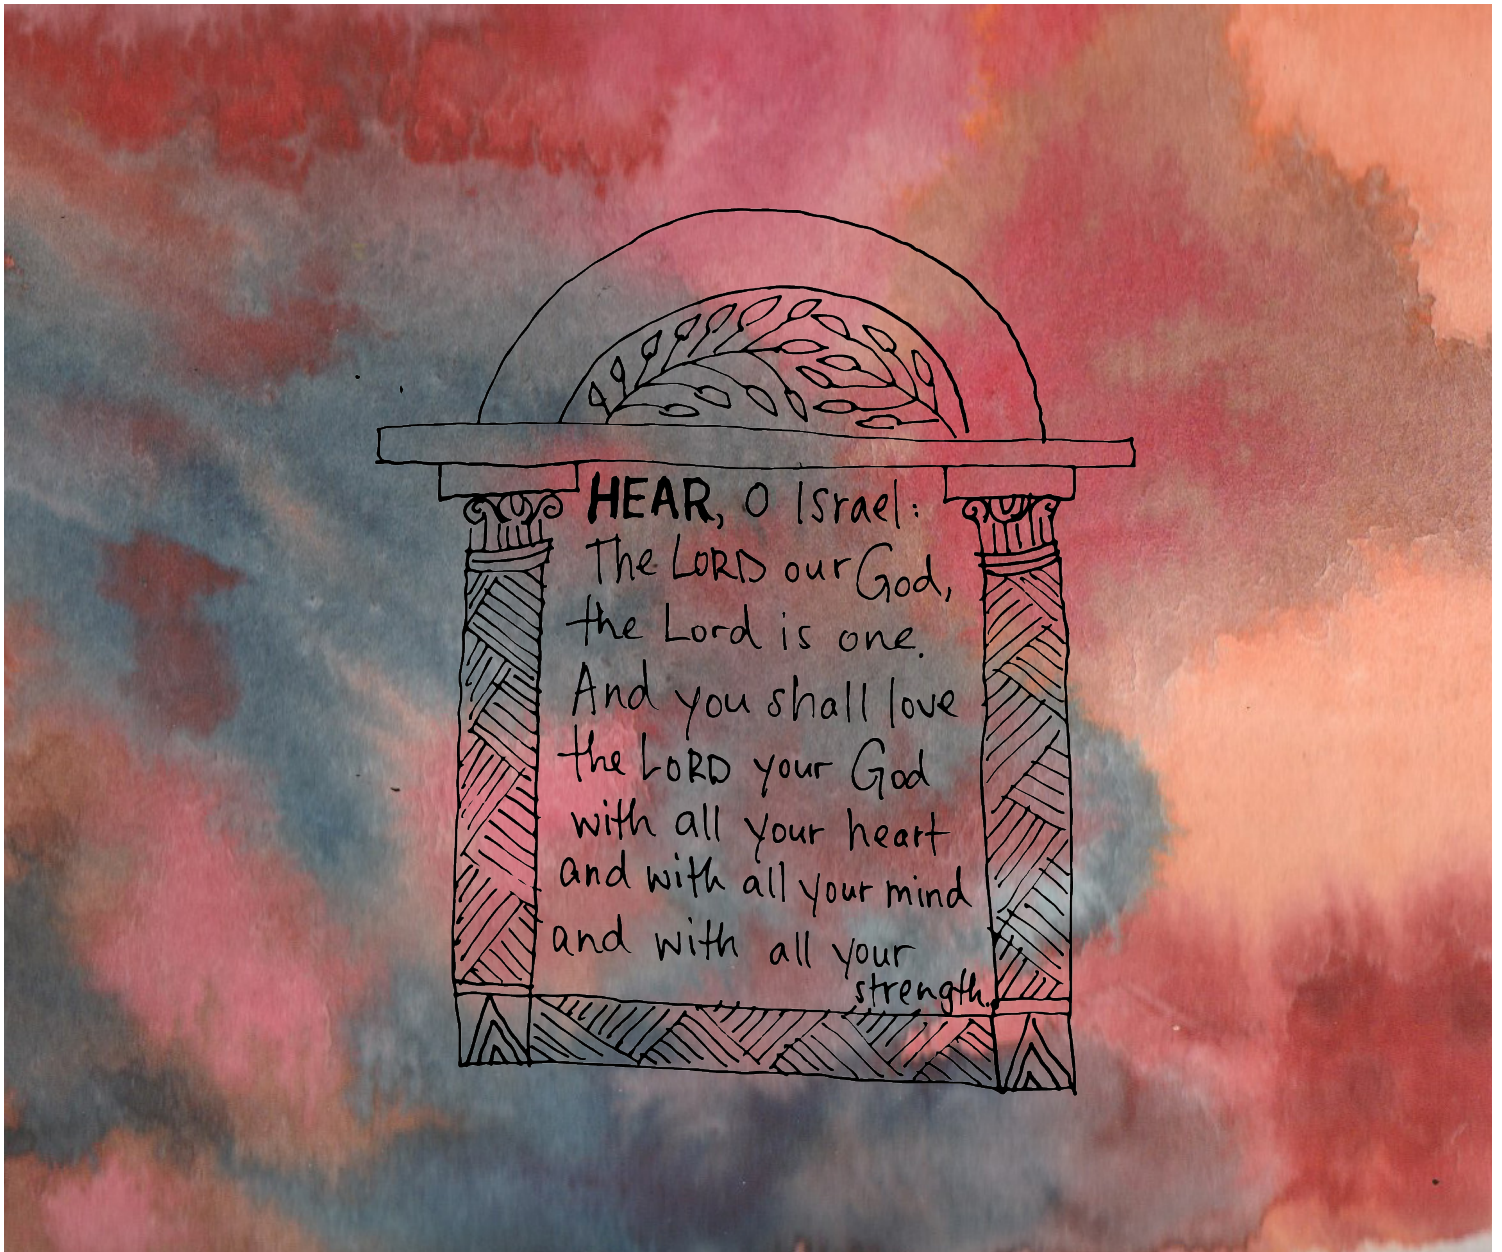 HEAR, O Israel:
The LORD our God,
the Lord is one.
And you shall love
the LORD your God
with all your heart
and with all your mind
and with all your
strength.